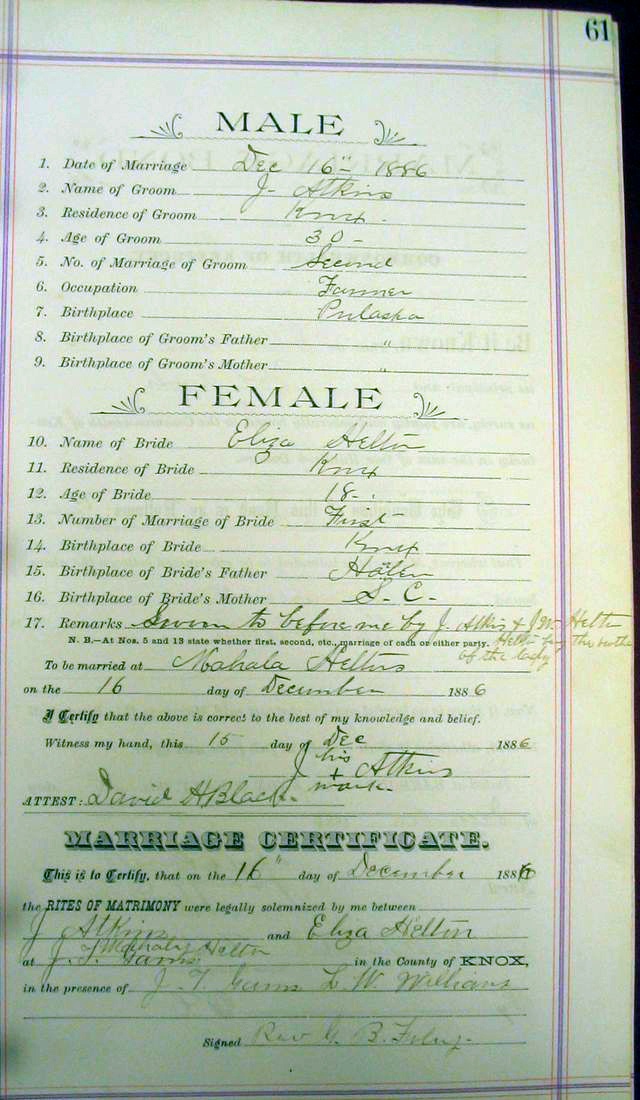 61
MALE
1. Date of Marriage Dec 16" 1886
2. Name of Groom J. Atkins
3. Residence of Groom Knox
4. Age of Groom 30
5. No. of Marriage of Groom Second
6. Occupation Farmer
7. Birthplace Pulaska
8. Birthplace of Groom's Father "
9. Birthplace of Groom's Mother "
FEMALE
10. Name of Bride Eliza Helton
11. Residence of Bride Knox
12. Age of Bride 18
13. Number of Marriage of Bride First
14. Birthplace of Bride Knox
15. Birthplace of Bride's Father
16. Birthplace of Bride's Mother S. C.
17. Remarks Sworn to before me by J. Atkins & J. W. Helton
N. B.—At Nos. 5 and 13 state whether first, second, etc., marriage of each or either party. Helton being the
of the lady
To be married at Mahala Heltons
on the 16 day of December 1886
I Certify that the above is correct to the best of my knowledge and belief.
Witness my hand, this 15 day of Dec 1886
his
J + Atkins
mark
ATTEST: David H Black
MARRIAGE CERTIFICATE.
This is to Certify, that on the 16" day of December 1886
the RITES OF MATRIMONY were legally solemnized by me between
J Atkins and Eliza Helton
Mahaly Helton
at J. T. in the County of KNOX,
in the presence of J. T. L. W. Williams
Signed Rev G. B.